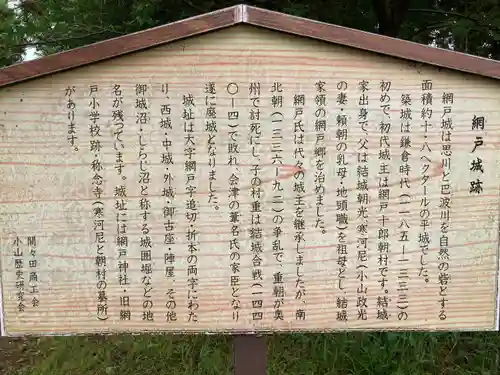 網戸城跡
網戸城は思川と巴波川を自然の砦とする
面積約十・八ヘクタールの平城でした。
築城は鎌倉時代(一一八五-一三三三)の
初めで、初代城主は網戸十郎朝村です。結城
家出身で、父は結城朝光、寒河尼(小山政光
の妻・頼朝の乳母・地頭職)を祖母とし、結城
家領の網戸郷を治めました。
網戸氏は代々の城主を継承しましたが、南
北朝(一三三六-九二)の争乱で、重朝が奥
州で討死にし、子の村重は結城合戦(一四四
〇-四一)で敗れ、会津の葦名氏の家臣となり
遂に廃城となりました。
城址は大字網戸字追切・折本の両字にわた
り、西城・中城・外城・御古座・陣屋、その他
御城沼・しらじ沼と称する城囲堀などの地
名が残っています。城址には網戸神社・旧網
戸小学校跡・称念寺(寒河尼と朝村の墓所)
があります。
間々田商工会
小山歴史研究会